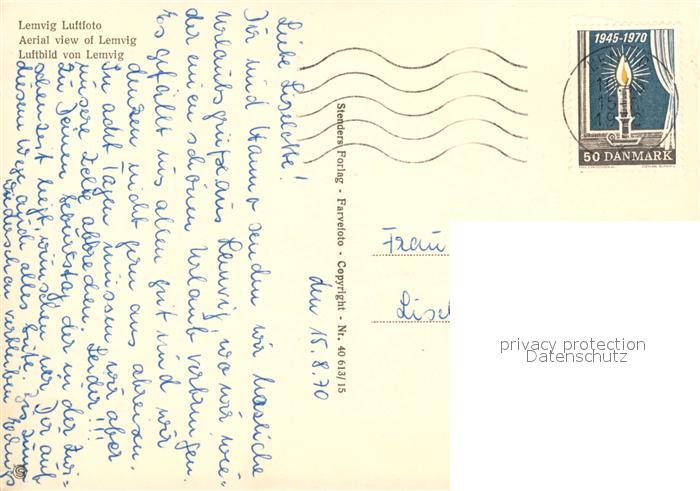 Lemvig Luftfoto
Aerial view of Lemvig
Luftbild von Lemvig
1945-1970
50 DANMARK
Stenders Forlag - Farvefoto - Copyright - Nr. 40 613/15
den 15.8.70
Liebe Liselotte!
Dir und Hanna senden wir herzliche
Urlaubsgrüße aus Lemvig, wo wir wie-
der einen schönen Urlaub verbringen.
Es gefällt uns allen gut und wir
denken nicht gern ans abreisen.
In acht Tagen müssen wir aber
unsere Zelte abbrechen. Leider!!!
Zu Deinem Geburtstag der in der Zwi-
schenzeit liegt, wünschen wir Dir auf
diesem Wege auch alles Gute.
Wiederschau verbleiben
Frau
privacy protection
Datenschutz